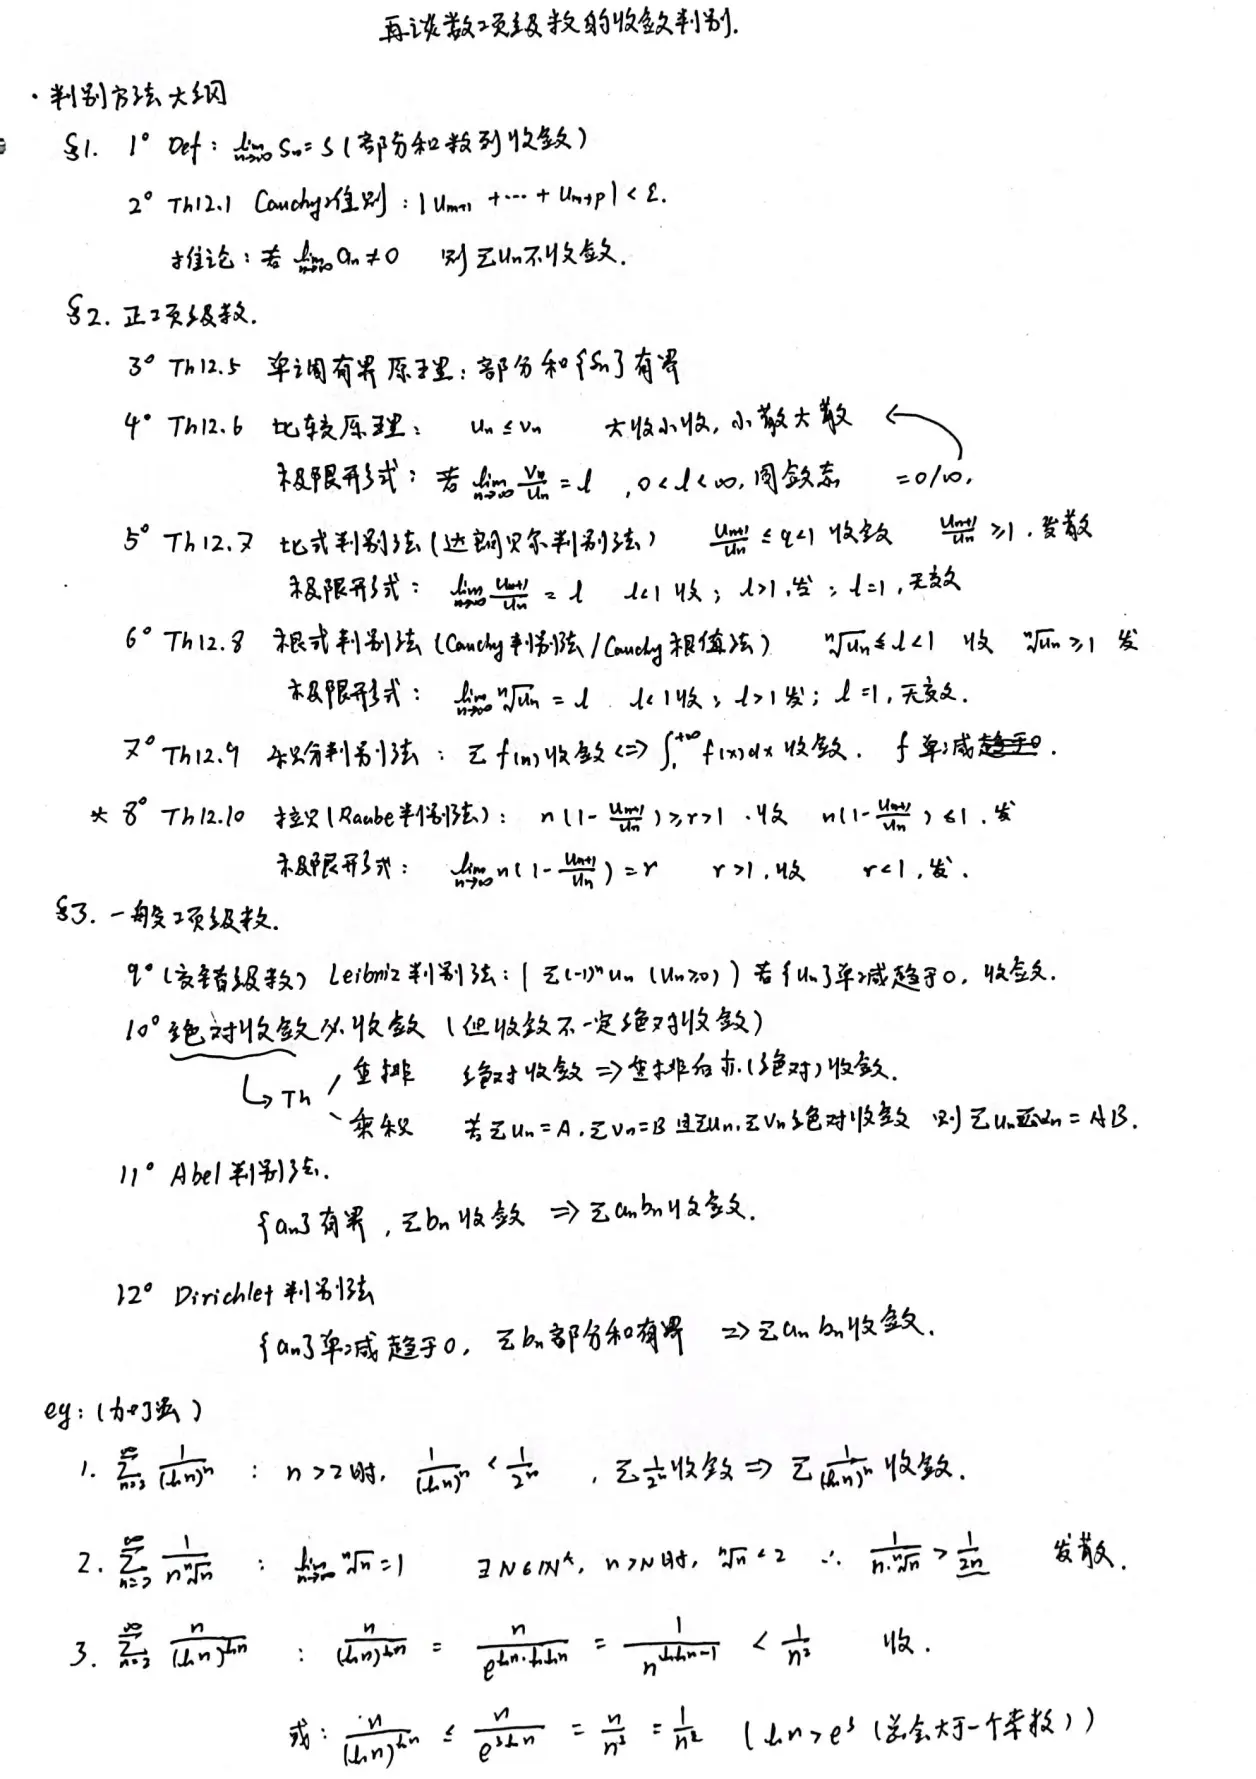 再谈数项级数的收敛判别.
· 判别方法大纲
§1. 1° Def: lim_{n→∞} Sn = S (部分和数列收敛)
2° Th12.1 Cauchy准则: |u_{m+1} + ··· + u_{m+p}| < ε.
推论: 若 lim_{n→∞} an ≠ 0 则 Σun不收敛.
§2. 正项级数.
3° Th12.5 单调有界原理: 部分和{Sn}有界
4° Th12.6 比较原理: un ≤ vn 大收小收, 小散大散
极限形式: 若 lim_{n→∞} vn/un = l , 0<l<∞, 同敛态 =0/∞,
5° Th12.7 比式判别法(达朗贝尔判别法) u_{n+1}/un ≤ q<1 收敛 u_{n+1}/un ≥1. 发散
极限形式: lim_{n→∞} u_{n+1}/un = l l<1 收; l>1, 发; l=1, 无效
6° Th12.8 根式判别法 (Cauchy判别法/Cauchy根值法) ⁿ√un ≤ l<1 收 ⁿ√un ≥1 发
极限形式: lim_{n→∞} ⁿ√un = l l<1收; l>1发; l=1, 无效.
7° Th12.9 积分判别法: Σ f(n)收敛 <=> ∫₁^{+∞} f(x)dx 收敛. f 单减.
* 8° Th12.10 拉贝(Raabe判别法): n(1- u_{n+1}/un) ≥r>1 .收 n(1- u_{n+1}/un) ≤1. 发
极限形式: lim_{n→∞} n(1- u_{n+1}/un) = r r>1, 收 r<1, 发.
§3. 一般项级数.
9° (交错级数) Leibniz判别法: (Σ(-1)ⁿun (un≥0)) 若{un}单减趋于0, 收敛.
10° 绝对收敛必收敛 (但收敛不一定绝对收敛)
Th 重排 绝对收敛 ⇒ 重排后亦(绝对)收敛.
乘积 若Σun=A, Σvn=B 且Σun, Σvn绝对收敛 则ΣunΣvn = AB.
11° Abel判别法.
{an}有界, Σbn收敛 ⇒ Σanbn收敛.
12° Dirichlet判别法
{an}单减趋于0, Σbn部分和有界 ⇒ Σanbn收敛.
eg:
1. Σ_{n=2}^{∞} 1/(ln n)ⁿ : n>2时, 1/(ln n)ⁿ < 1/2ⁿ , Σ1/2ⁿ收敛 ⇒ Σ1/(ln n)ⁿ 收敛.
2. Σ_{n=2}^{∞} 1/(n ⁿ√n) : lim_{n→∞} ⁿ√n = 1 ∃N∈ℕ*, n>N时, ⁿ√n<2 ∴ 1/(n·ⁿ√n) > 1/2n 发散.
3. Σ_{n=2}^{∞} n/(ln n)^{ln n} : n/(ln n)^{ln n} = n/e^{ln n·ln ln n} = 1/n^{ln ln n-1} < 1/n² 收.
或: n/(ln n)^{ln n} ≤ n/e^{3 ln n} = n/n³ = 1/n² (ln n > e³ (总会大于一个常数))